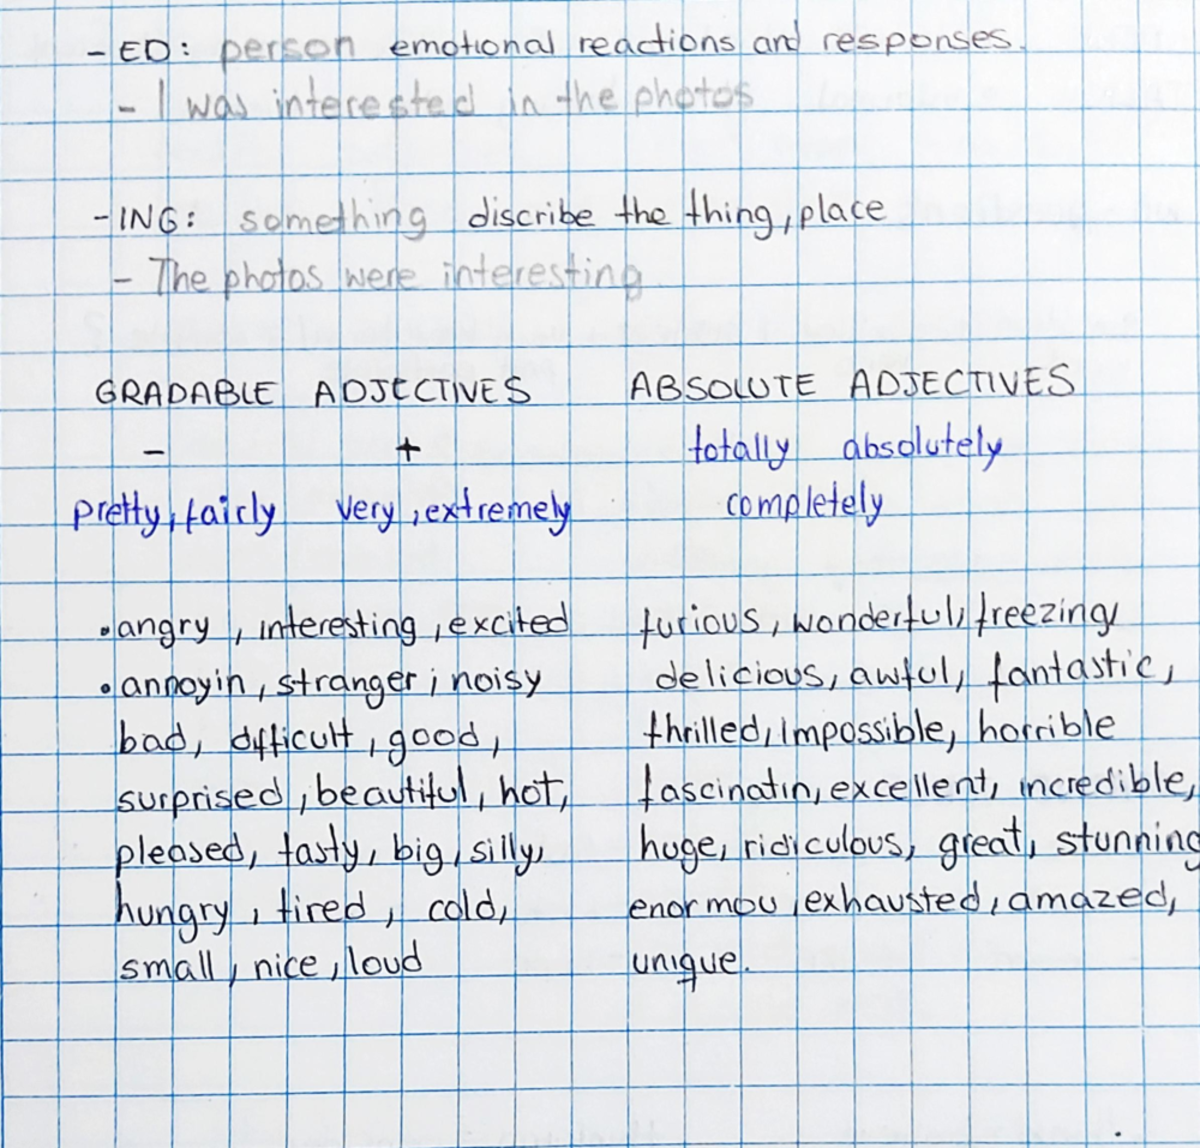 - ED: person emotional reactions and responses.
- I was interested in the photos
- ING: something discribe the thing, place
- The photos were interesting
GRADABLE ADJECTIVES ABSOLUTE ADJECTIVES
- + totally absolutely
pretty, fairly very, extremely completely
• angry, interesting, excited furious, wonderful, freezing
• annoyin, stranger, noisy delicious, awful, fantastic,
bad, difficult, good, thrilled, impossible, horrible
surprised, beautiful, hot, fascinatin, excellent, incredible,
pleased, tasty, big, silly, huge, ridiculous, great, stunning
hungry, tired, cold, enormou, exhausted, amazed,
small, nice, loud unique.